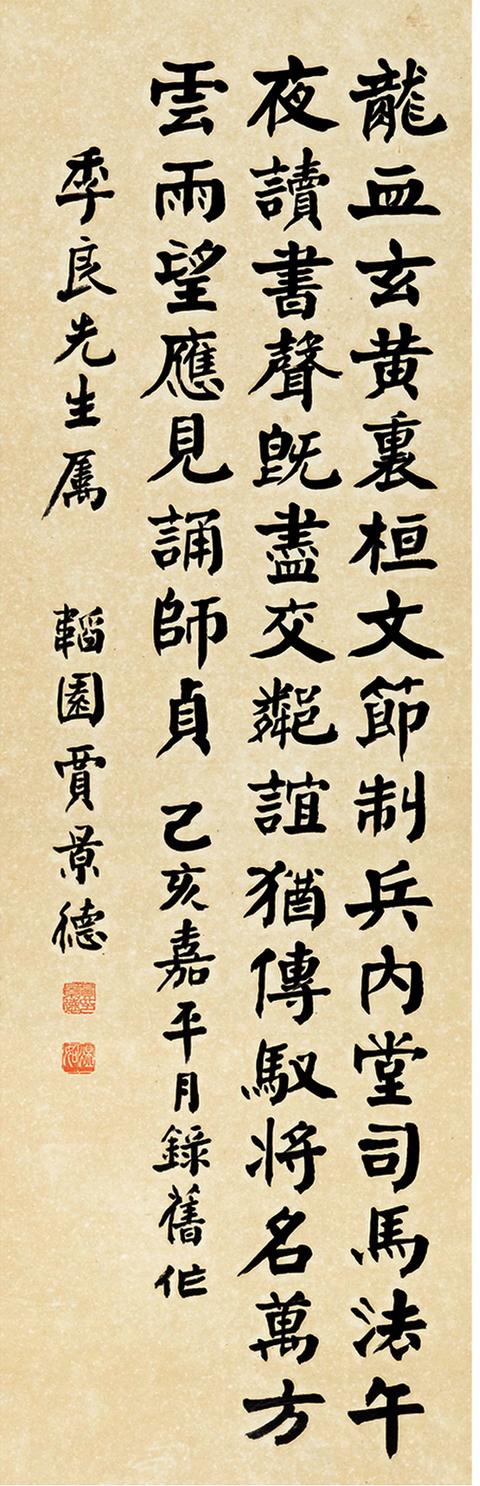 龍血玄黄裏桓文節制兵内堂司馬法午
夜讀書聲既盡交鄰誼猶傳馭將名萬方
雲雨望應見誦師貞 乙亥嘉平月錄舊作
季良先生属 韜園賈景德